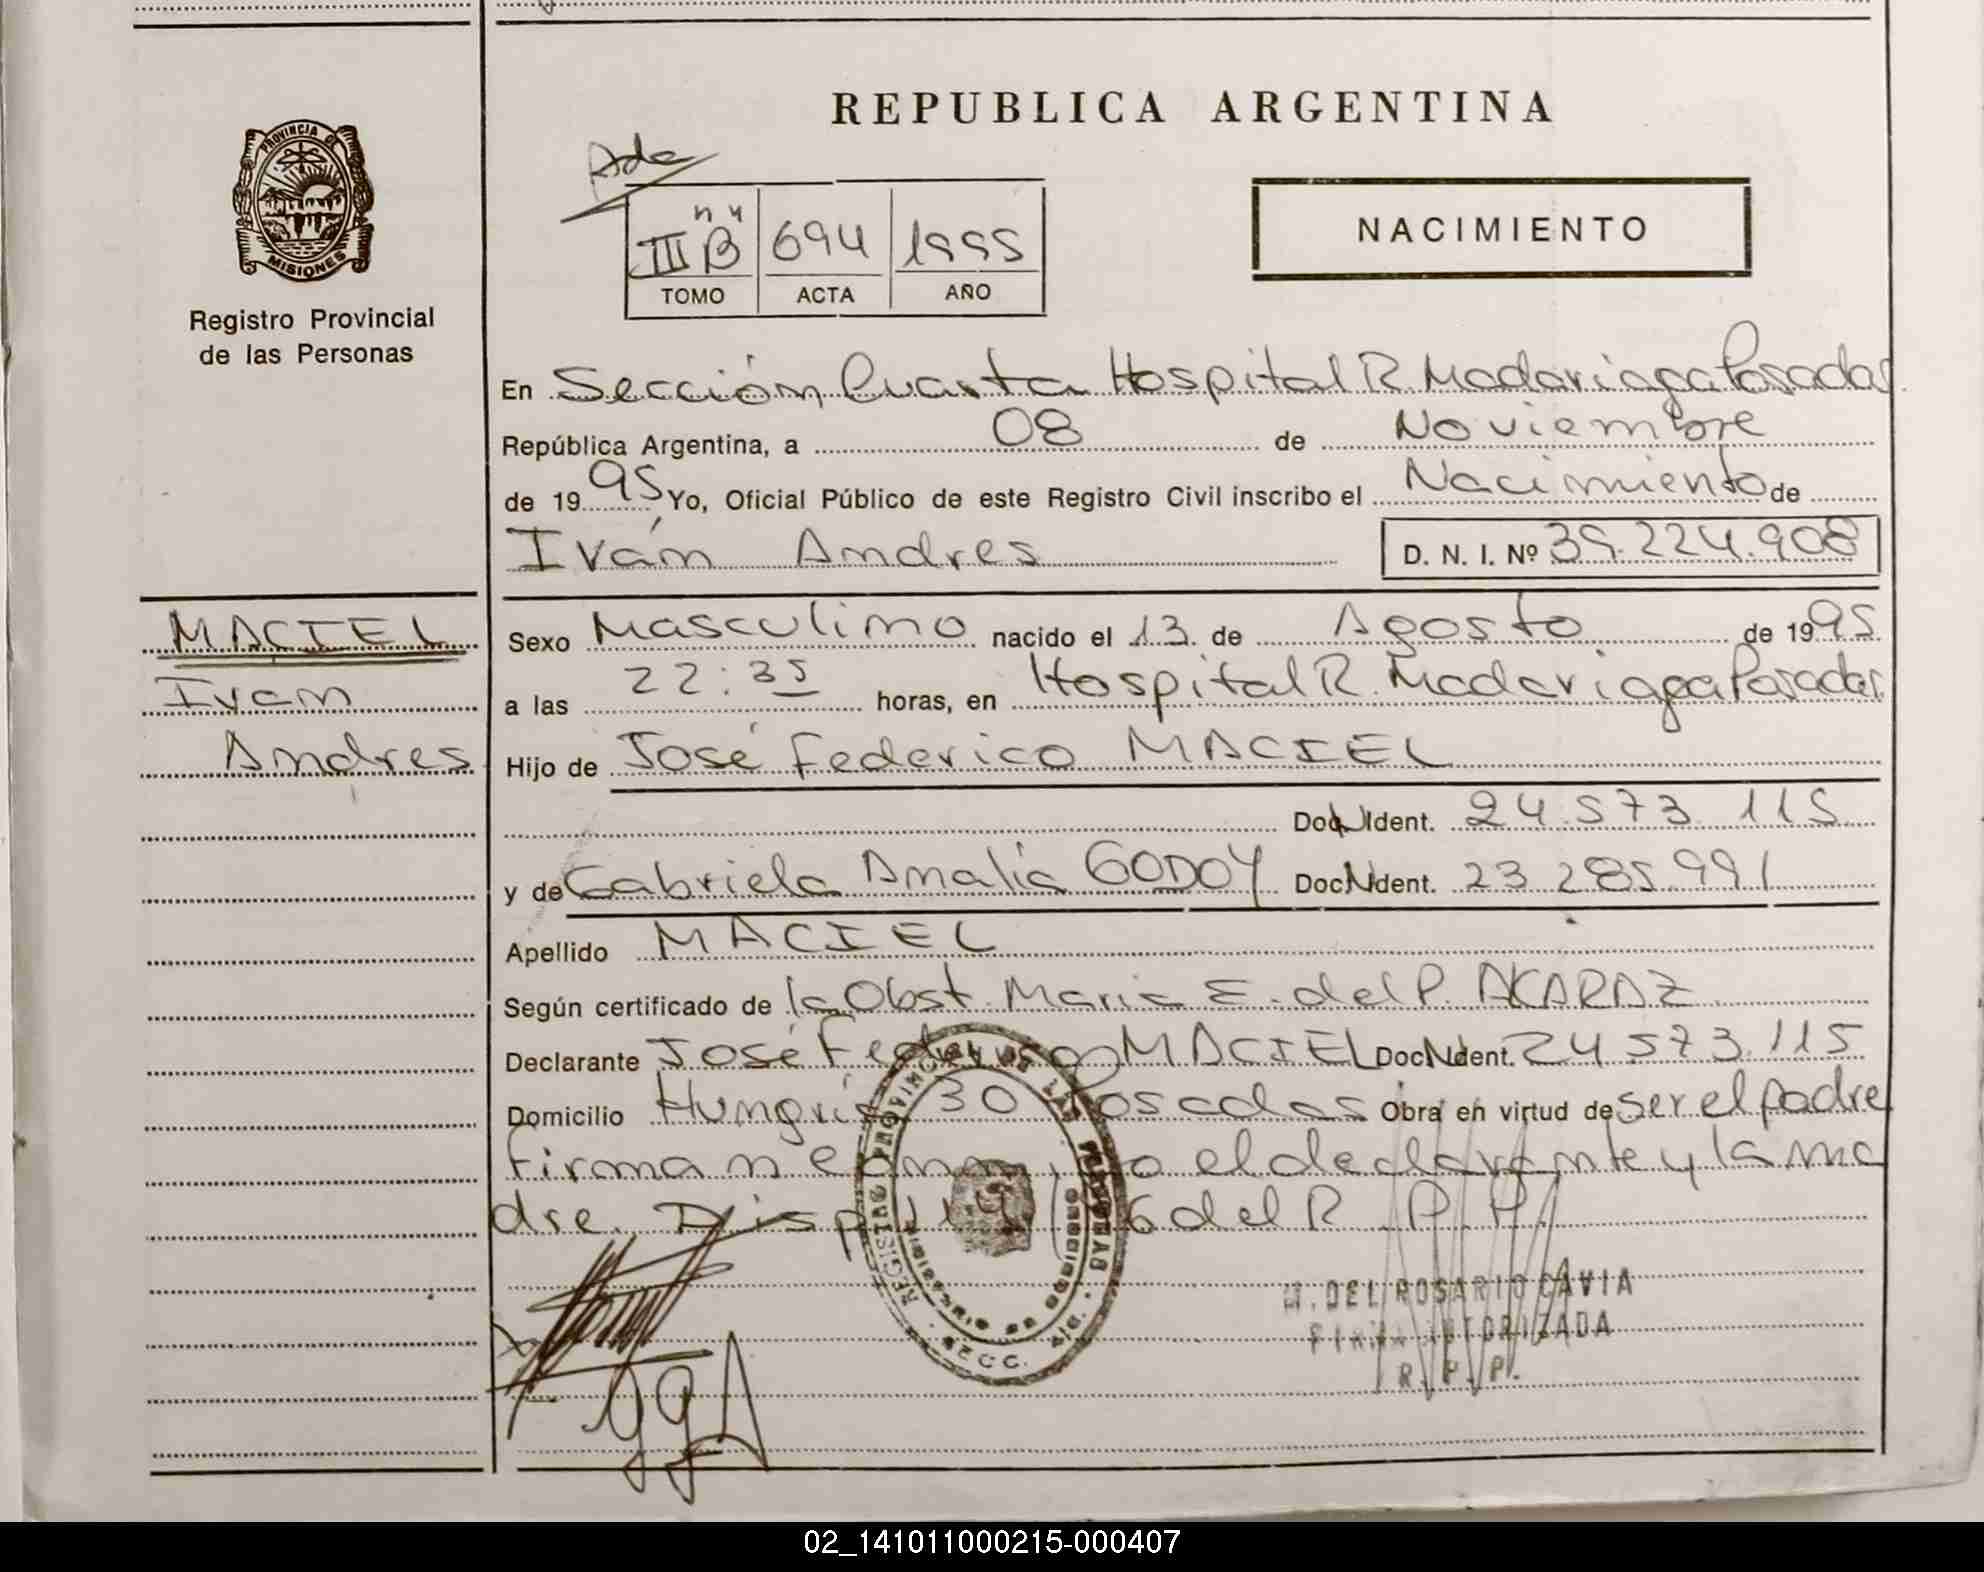 REPUBLICA ARGENTINA
PROVINCIA DE
MISIONES
Registro Provincial
de las Personas
III B 694 1995
TOMO ACTA AÑO
NACIMIENTO
En Sección Cuarta Hospital R. Madariaga Posadas
República Argentina, a 08 de Noviembre
de 1995 Yo, Oficial Público de este Registro Civil inscribo el Nacimiento de
Iván Andres D. N. I. Nº 39.224.908
MACIEL
Ivan
Andres
Sexo Masculino nacido el 13 de Agosto de 1995
a las 22:35 horas, en Hospital R. Madariaga Posadas
Hijo de José Federico MACIEL
Doc N Ident. 24.573.115
y de Gabriela Amalia GODOY Doc N Ident. 23.285.991
Apellido MACIEL
Según certificado de la Obst. Maria E. del P. ALCARAZ
Declarante José Federico MACIEL Doc N Ident. 24.573.115
Domicilio Hungria 30 Posadas Obra en virtud de ser el padre
Firman el declarante y la ma
dre. Disp del R. P. P.
M. DEL ROSARIO CAVIA
FIRMA AUTORIZADA
R. P. P.
02_141011000215-000407